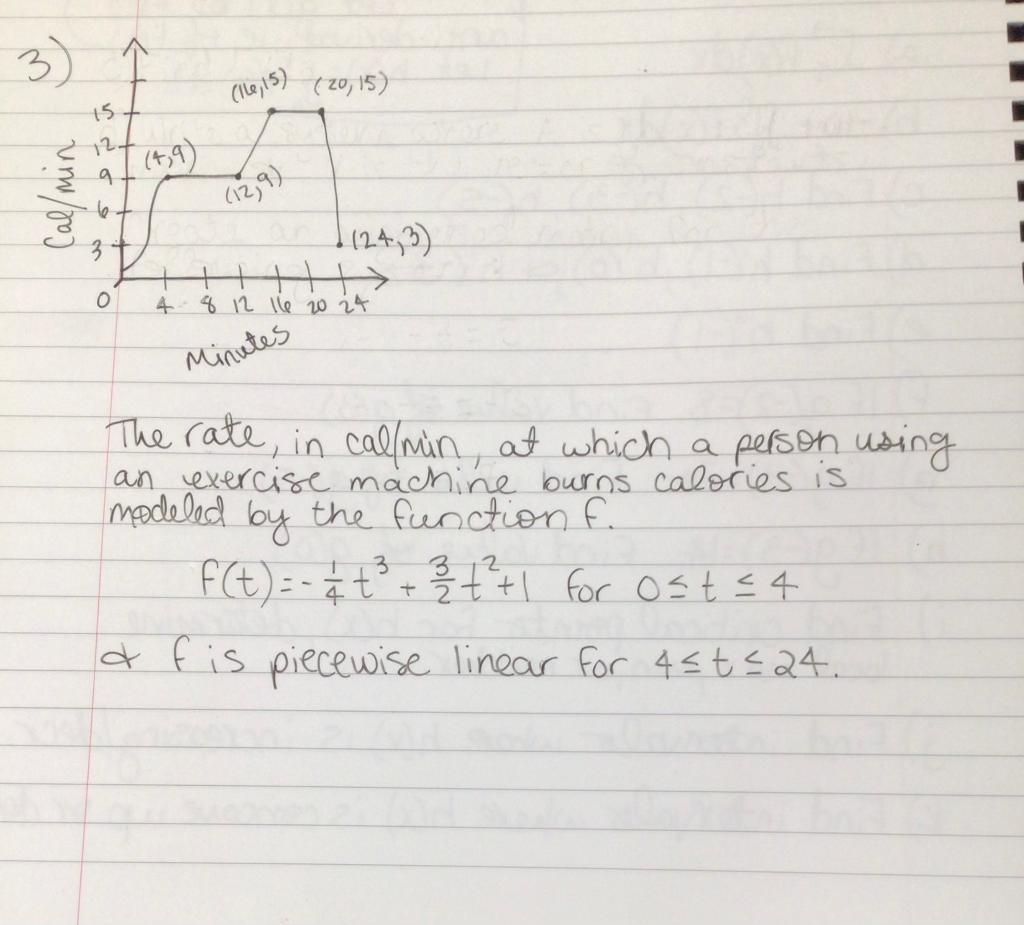 3)
(16,15) (20,15)
15
12
(4,9)
9
(12,9)
6
3
(24,3)
Cal/min
0 4 8 12 16 20 24
Minutes
The rate, in cal/min, at which a person using
an exercise machine burns calories is
modeled by the function f.
f(t) = -1/4 t³ + 3/2 t² + 1 for 0 ≤ t ≤ 4
& f is piecewise linear for 4 ≤ t ≤ 24.